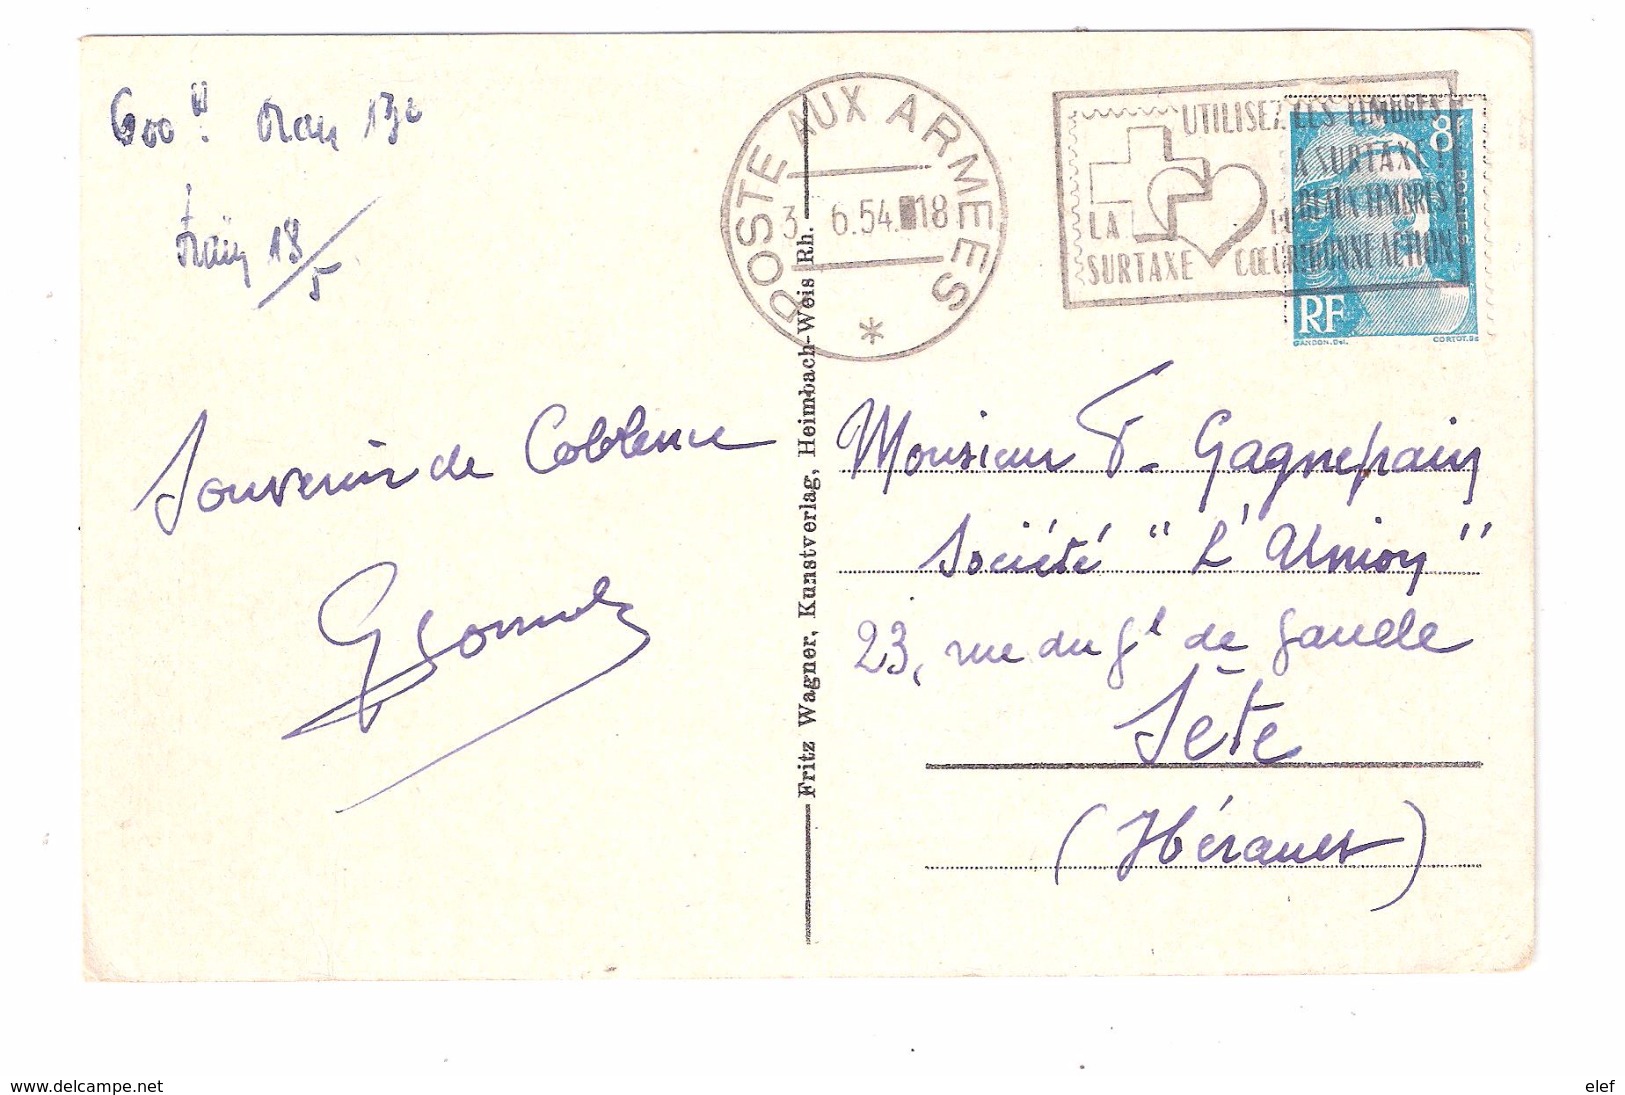 POSTE AUX ARMEES
3 6.54 18
*
UTILISEZ LES TIMBRES
A SURTAXE
BEAUX TIMBRES
LA
SURTAXE CŒUR BONNE ACTION
8F
POSTES
RF
GANDON. Del. CORTOT. Sc
Souvenir de Coblence
Fritz Wagner, Kunstverlag, Heimbach-Weis Rh.
Monsieur F. Gagnepain
Société "L'Union"
23, rue du Gl de Gaulle
Sète
(Hérault)
www.delcampe.net
elef